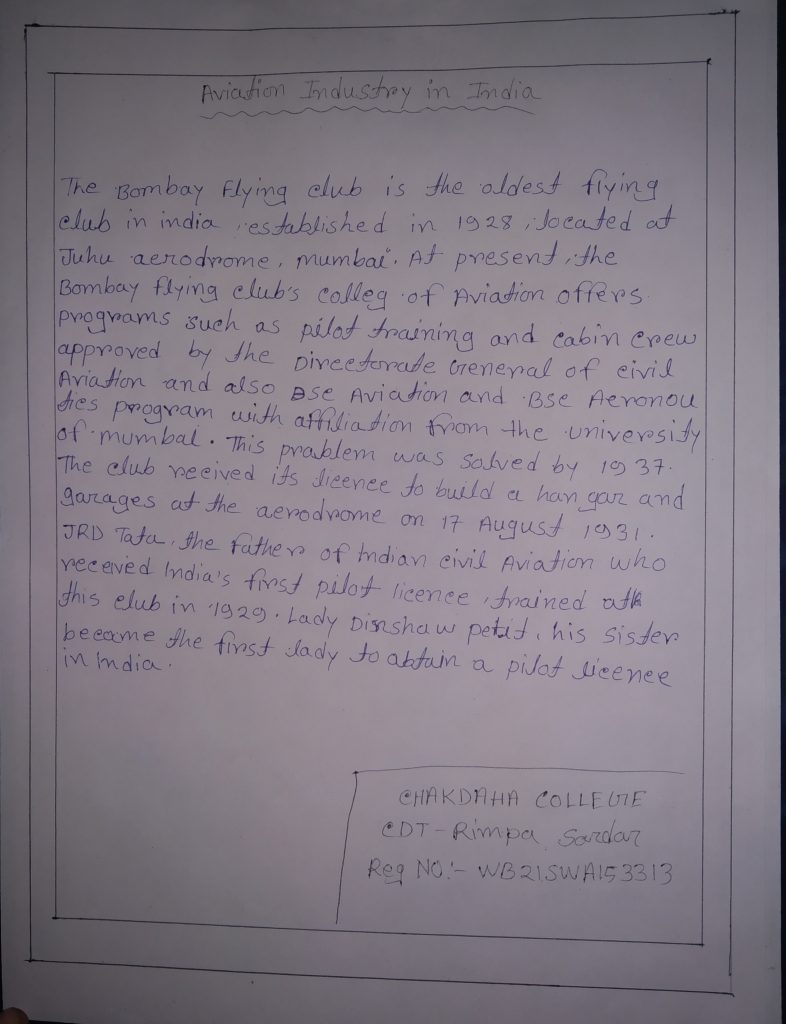 Aviation Industry in India
The Bombay Flying club is the oldest flying
club in india, established in 1928, located at
Juhu aerodrome, mumbai. At present, the
Bombay flying club's colleg of Aviation offers
programs such as pilot training and cabin crew
approved by the Directorate General of civil
Aviation and also Bsc Aviation and Bsc Aeronou
ties program with affiliation from the university
of mumbai. This problem was solved by 1937.
The club received its licence to build a hangar and
garages at the aerodrome on 17 August 1931.
JRD Tata, the father of Indian civil Aviation who
received India's first pilot licence, trained at
this club in 1929. Lady Dinshaw petit, his sister
became the first lady to obtain a pilot licence
in India.
CHAKDAHA COLLEGE
CDT - Rimpa Sardar
Reg NO:- WB21SWA153313